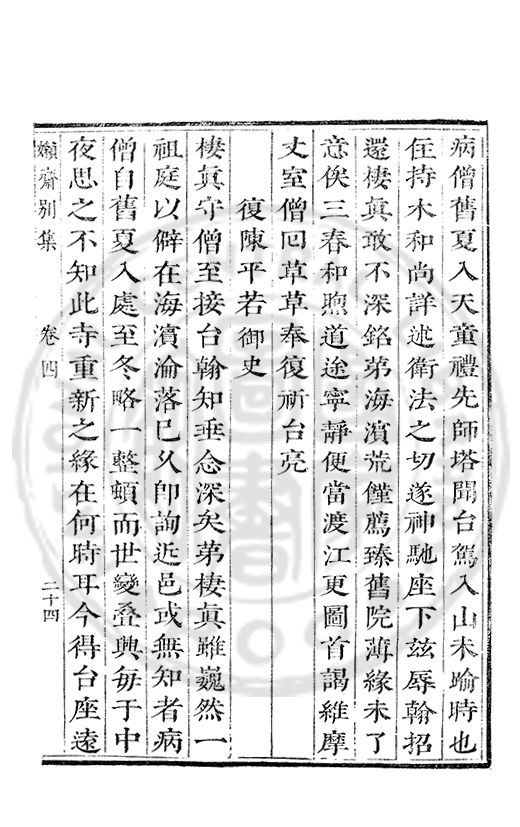 病僧舊夏入天童禮先師塔聞台駕入山未踰時也
住持木和尚詳述衛法之切遂神馳座下茲辱翰招
還棲真敢不深銘弟海濱荒饉薦臻舊院薄緣未了
意俟三春和煦道途寧靜便當渡江更圖首謁維摩
丈室僧回草草奉復祈台亮
復陳平若御史
棲真守僧至接台翰知垂念深矣弟棲真雖巍然一
祖庭以僻在海濱淪落已久卽詢近邑或無知者病
僧自舊夏入處至冬略一整頓而世變叠興每于中
夜思之不知此寺重新之緣在何時耳今得台座遠
嬾齋別集 卷四 二十四